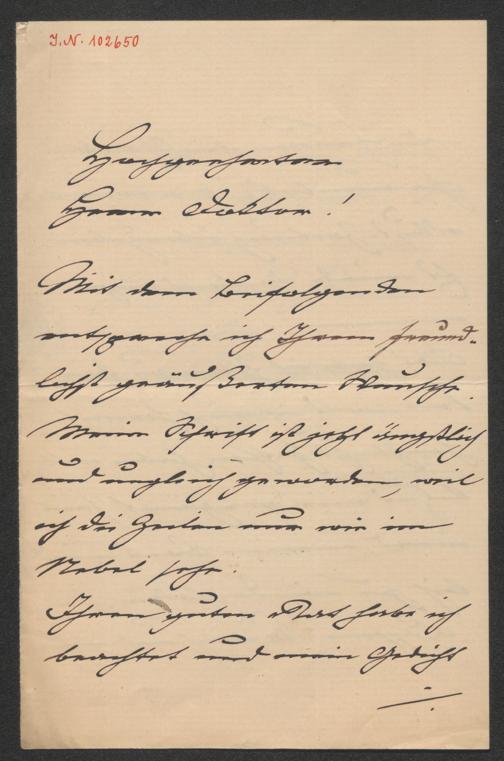 J.N. 102650
Hochgeehrter
Herr Doktor!
Mit dem Beifolgenden
entspreche ich Ihrem freund-
lichst geäußerten Wunsche.
Meine Schrift ist jetzt ängstlich
und ungleich geworden, weil
ich die Zeilen nur wie im
Nebel sehe.
Ihren guten Rat habe ich
beachtet und mein Gedicht